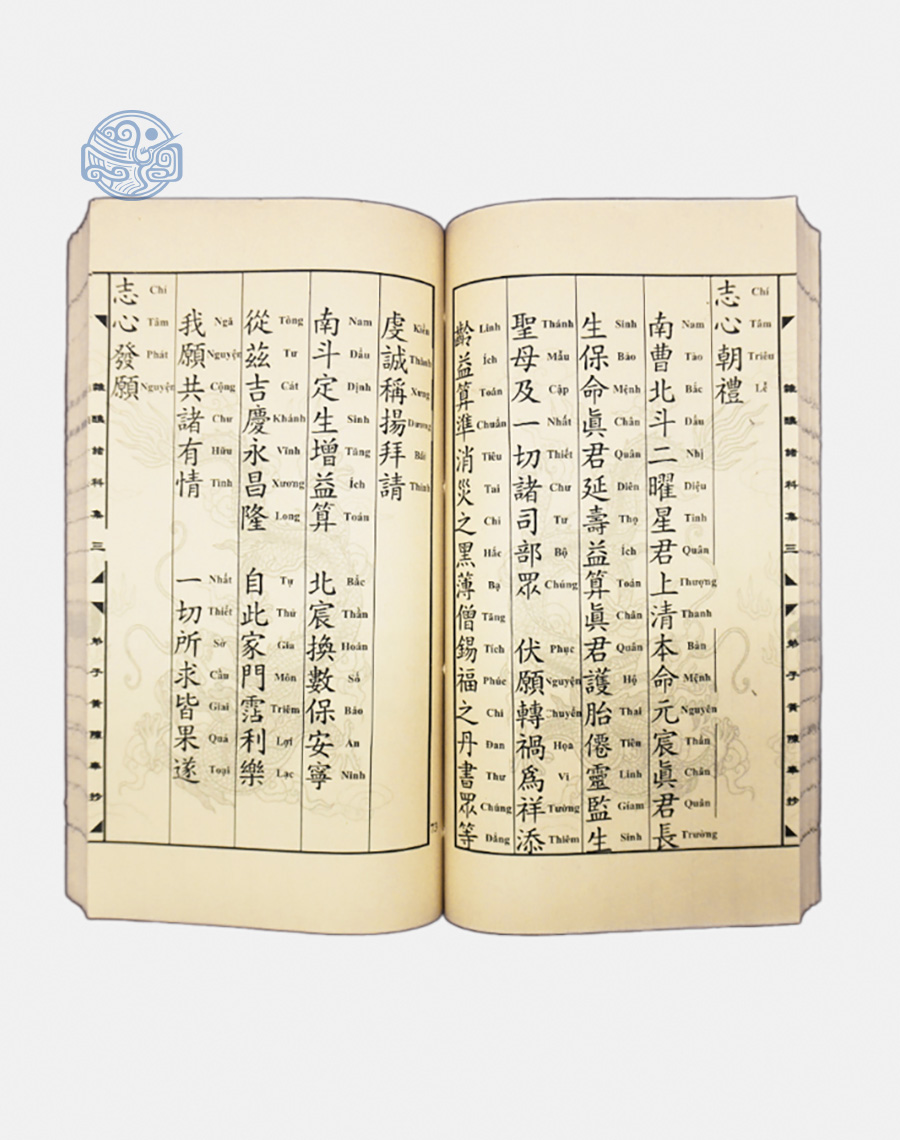 雜醮諸科集 三 弟子黃陳奉抄
志心朝禮
Chí Tâm Triêu Lễ
南曹北斗二曜星君上清本命元宸眞君長
Nam Tào Bắc Đẩu Nhị Diệu Tinh Quân Thượng Thanh Bản Mệnh Nguyên Thần Chân Quân Trường
生保命眞君延壽益算眞君護胎僊靈監生
Sinh Bảo Mệnh Chân Quân Diên Thọ Ích Toán Chân Quân Hộ Thai Tiên Linh Giám Sinh
聖母及一切諸司部眾 伏願轉禍爲祥添
Thánh Mẫu Cập Nhất Thiết Chư Tư Bộ Chúng Phục Nguyện Chuyển Họa Vi Tường Thiêm
齡益算準消災之黑薄僧錫福之丹書眾等
Linh Ích Toán Chuẩn Tiêu Tai Chi Hắc Bạ Tăng Tích Phúc Chi Đan Thư Chúng Đẳng
虔誠稱揚拜請
Kiền Thành Xưng Dương Bái Thỉnh
南斗定生增益算 北宸換數保安寧
Nam Đẩu Định Sinh Tăng Ích Toán Bắc Thần Hoán Số Bảo An Ninh
從茲吉慶永昌隆 自此家門霑利樂
Tòng Tư Cát Khánh Vĩnh Xương Long Tự Thử Gia Môn Triêm Lợi Lạc
我願共諸有情 一切所求皆果遂
Ngã Nguyện Cộng Chư Hữu Tình Nhất Thiết Sở Cầu Giai Quả Toại
志心發願
Chí Tâm Phát Nguyện
雜醮諸科集 三 弟子黃陳奉抄